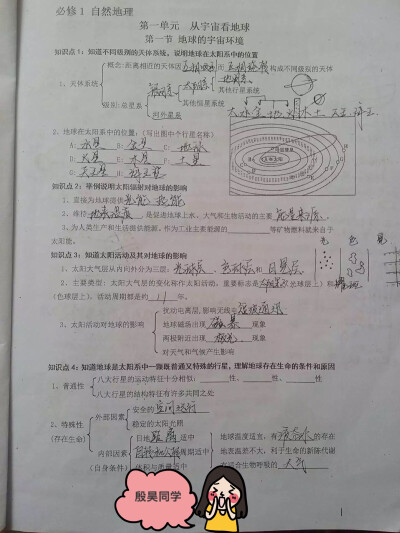 必修1 自然地理
第一单元 从宇宙看地球
第一节 地球的宇宙环境
知识点1：知道不同级别的天体系统，说明地球在太阳系中的位置
概念:距离相近的天体因互相吸引和互相绕转构成不同级别的天体
1、天体系统
地月系
太阳系
其他行星系
银河系
级别:总星系
其他恒星系统
河外星系
2、地球在太阳系中的位置：（写出图中个行星名称）
A：水星 B：金星 C：地球
火星 木星 土星
天王星 海王星
知识点2：举例说明太阳辐射对地球的影响
1、直接为地球提供光能、热能
2、维持地表温度，是促进地球上水、大气和生物活动的主要能量来源。
3、为人类生产和生活提供能源。作为工业主要能源的等矿物燃料就来自于
太阳能。
知识点3：知道太阳活动及其对地球的影响
1、太阳大气层从内向外分为三层：光球层、色球层和日冕层
光 色 冕
2、主要类型：太阳大气层的变化称作太阳活动。重要标志是（光球层上）和
（色球层上）。活动周期都是约11年。
扰动电离层，影响无线电
3、太阳活动对地球的影响
地球磁场出现磁暴现象
两极附近出现极光现象
对天气和气候产生影响
知识点4：知道地球是太阳系中一颗既普通又特殊的行星，理解地球存在生命的条件和原因
八大行星的运动特征十分相似: 性、 性、 性
1、普通性
八大行星的结构特征有许多共同之处
安全的
外部因素
稳定的太阳光照
2、特殊性
(存在生命)
日地距离适中 地球温度适宜，有液态水的存在
内部因素 周期适中 地表温差不大，利于生命的新陈代谢
(自身条件) 体积与质量适中 有适合生物呼吸的大气
殷昊同学
1